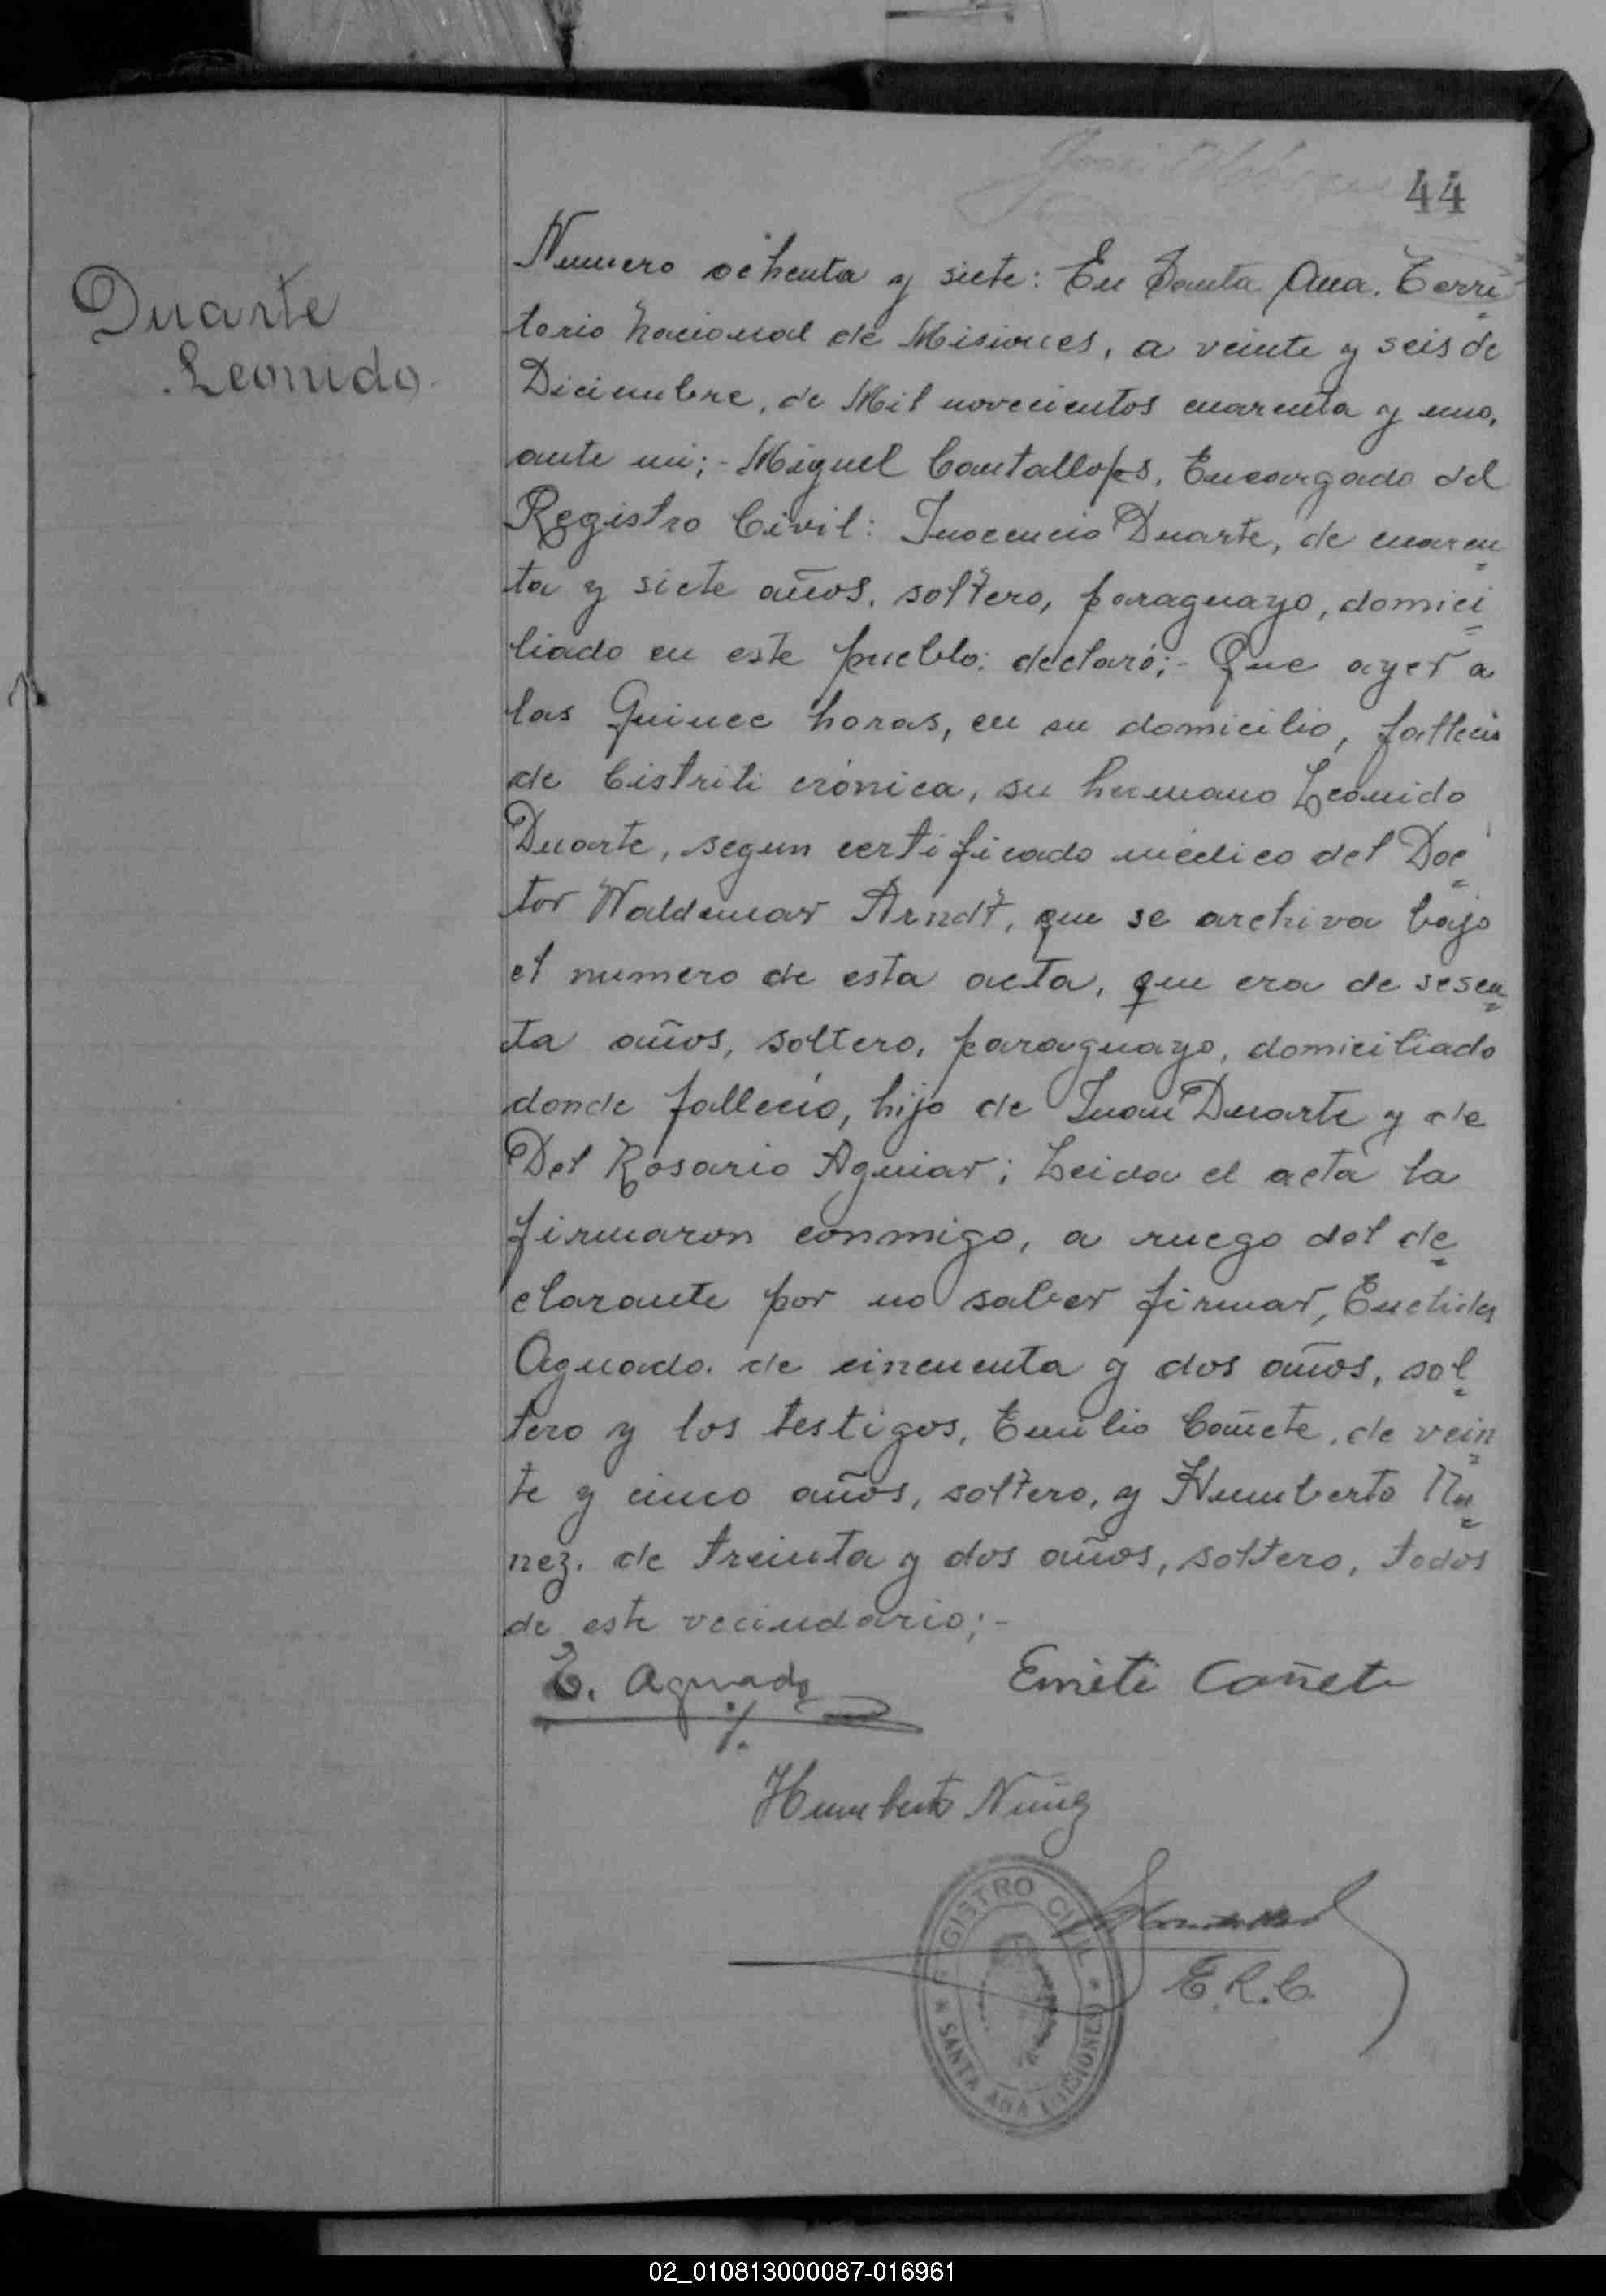 44
Duarte
Leonido.
Numero ochenta y siete: En Santa Ana. Terri
torio Nacional de Misiones, a veinte y seis de
Diciembre, de Mil novecientos cuarenta y uno,
ante mi;- Miguel Cantallops, Encargado del
Registro Civil: Inocencio Duarte, de cuaren
ta y siete años, soltero, paraguayo, domici
liado en este pueblo: declaró;- Que ayer a
las Quince horas, en su domicilio, fallecio
de Cistriti crónica, su hermano Leonido
Duarte, segun certificado médico del Doc
tor Waldemar Arndt, que se archiva bajo
el numero de esta acta, que era de sesen
ta años, soltero, paraguayo, domiciliado
donde falleció, hijo de Juan Duarte y de
Del Rosario Aguiar; Leida el acta la
firmaron conmigo, a ruego del de
clarante por no saber firmar, Euclides
Aguado. de cincuenta y dos años, sol
tero y los testigos, Emilio Cañete, de vein
te y cinco años, soltero, y Humberto Nu
nez. de treinta y dos años, soltero, todos
de este vecindario;-
E. Aguado
Emiti Cañete
Humberto Nuñez
REGISTRO CIVIL
E.R.C.
* SANTA ANA MISIONES *
02_010813000087-016961